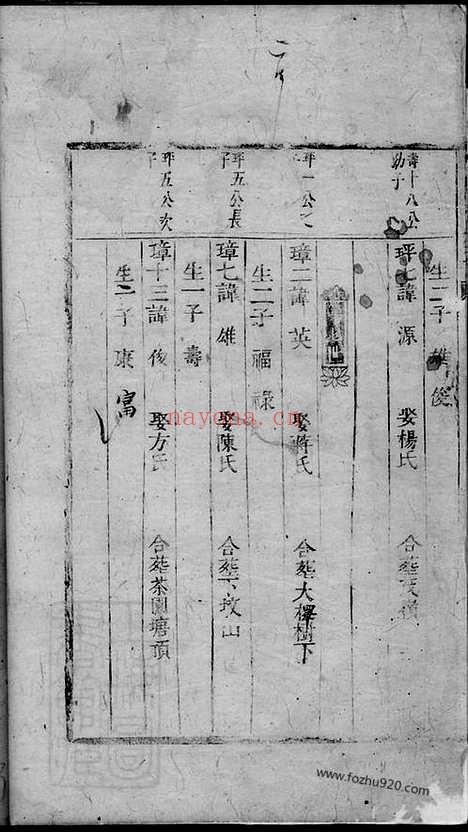 生二子雄俊
壽十八公幼子
玶七諱源　娶楊氏　合葬
玶一公之子
璋二諱英　娶蔣氏　合葬大樿樹下
生二子福祿
玶五公長子
璋七諱雄　娶陳氏　合葬六坟山
生一子壽
玶五公次子
璋十三諱俊　娶方氏　合葬茶園塘頂
生二子康富
nayona.cn
www.fozhu920.com